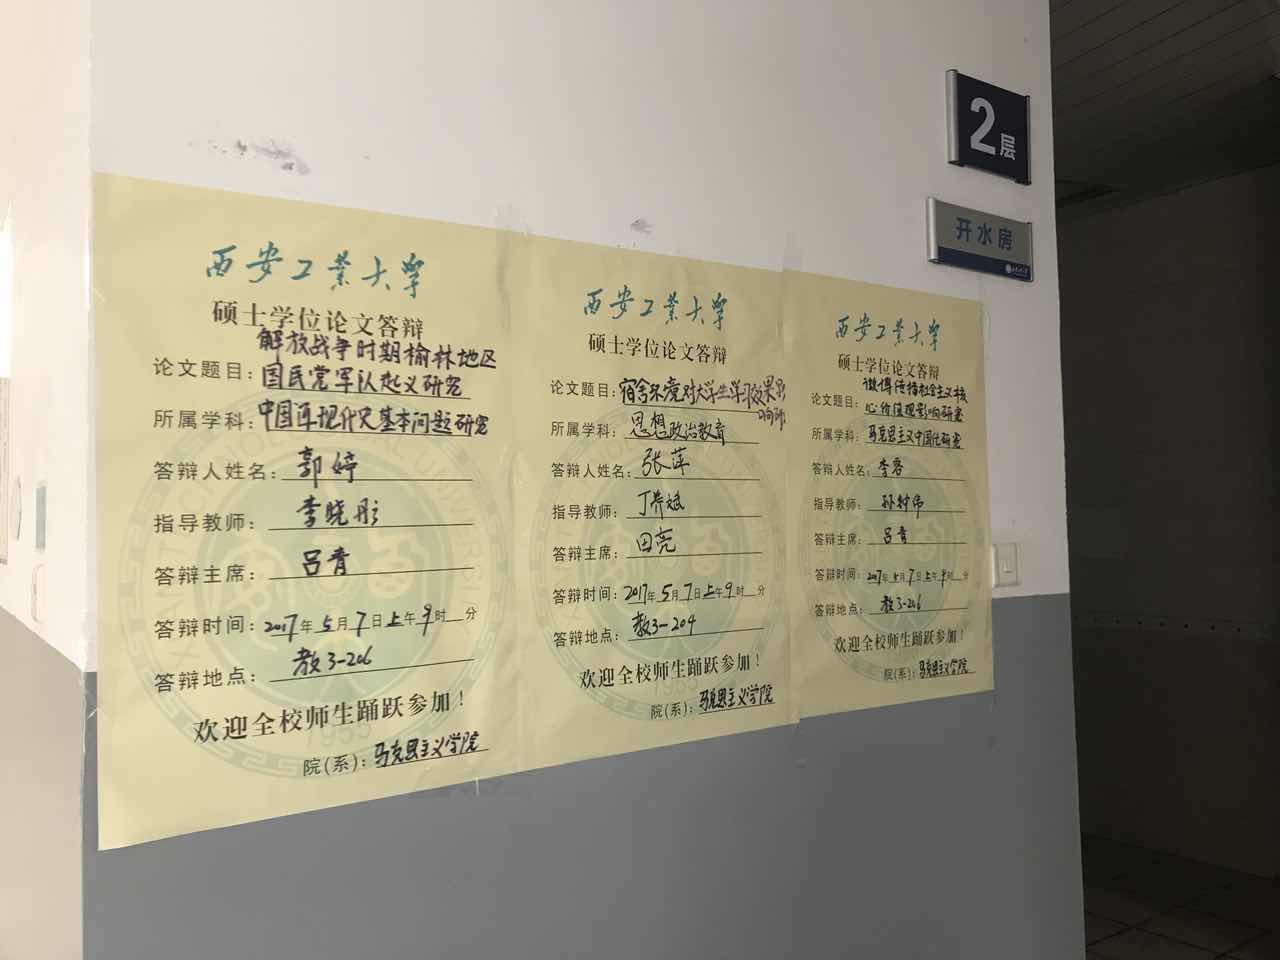 西安工业大学
硕士学位论文答辩
解放战争时期榆林地区
论文题目:国民党军队起义研究
所属学科:中国近现代史基本问题研究
答辩人姓名:郭婷
指导教师:李晓彤
答辩主席:吕青
答辩时间:2017年5月7日上午9时 分
答辩地点:教3-206
欢迎全校师生踊跃参加!
院(系):马克思主义学院
1955
西安工业大学
硕士学位论文答辩
论文题目:宿舍环境对大学生学习效果影
响研
所属学科:思想政治教育
答辩人姓名:张萍
指导教师:丁养斌
答辩主席:田亮
答辩时间:2017年5月7日上午9时 分
答辩地点:教3-204
欢迎全校师生踊跃参加!
院(系):马克思主义学院
1955
西安工业大学
硕士学位论文答辩
微博传播社会主义核
论文题目:心价值观影响研究
所属学科:马克思主义中国化研究
答辩人姓名:李容
指导教师:孙树伟
答辩主席:吕青
答辩时间:2017年5月7日上午9时 分
答辩地点:教3-206
欢迎全校师生踊跃参加!
院(系):马克思主义学院
2层
开水房